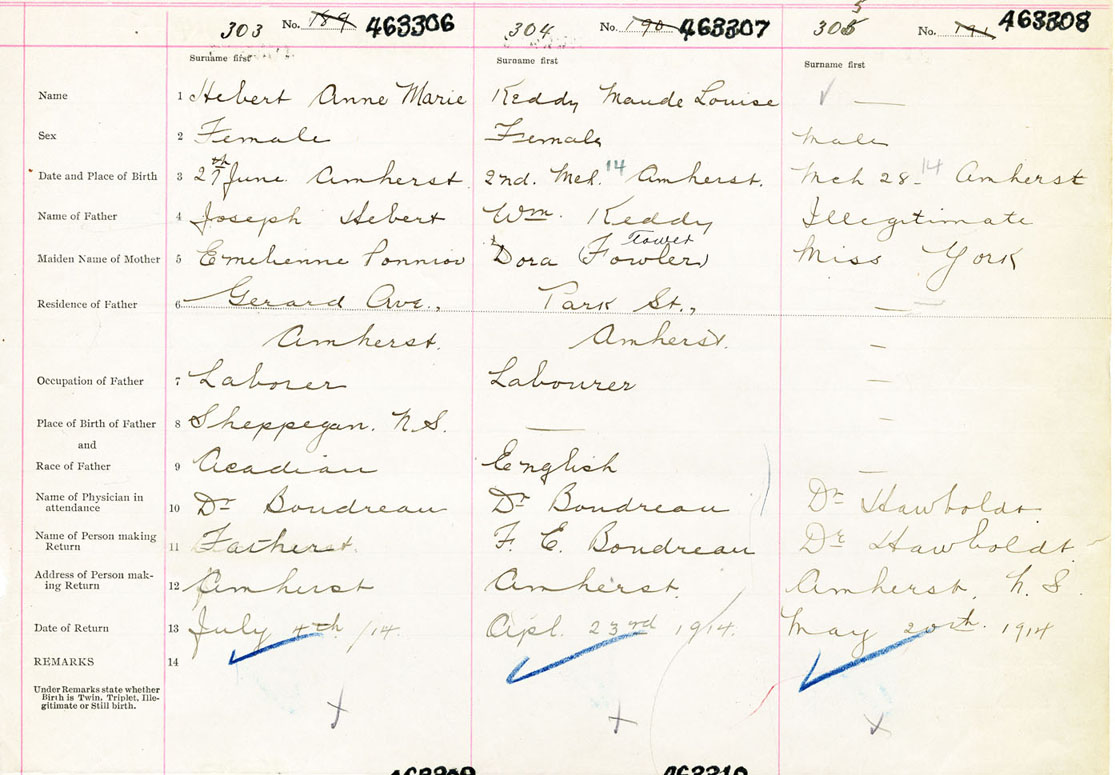 303 No. 189 463306 304 No. 190 463307 305 No. 191 463308
Surname first Surname first Surname first
Name 1 Hebert Anne Marie Keddy Maude Louise —
Sex 2 Female Female Male
Date and Place of Birth 3 27th June. Amherst. 2nd. Mch. 14 Amherst. Mch 28- 14 Amherst
Name of Father 4 Joseph Hebert Wm. Keddy Illegitimate
Tower
Maiden Name of Mother 5 Emelienne Dora (Fowler) Miss York
Residence of Father 6 Gerard Ave., Park St., —
Amherst. Amherst. —
Occupation of Father 7 Laborer Labourer —
Place of Birth of Father 8 Sheppegan. N.S. — —
and
Race of Father 9 Acadian English —
Name of Physician in
attendance 10 Dr Boudreau Dr Boudreau Dr Hawboldt
Name of Person making
Return 11 Father F. E. Boudreau Dr Hawboldt
Address of Person mak-
ing Return 12 Amherst Amherst. Amherst, N. S.
Date of Return 13 July 4th /14. Apl. 23rd 1914. May 20th. 1914
REMARKS 14
Under Remarks state whether
Birth is Twin, Triplet, Ille-
gitimate or Still birth.
463309 463310